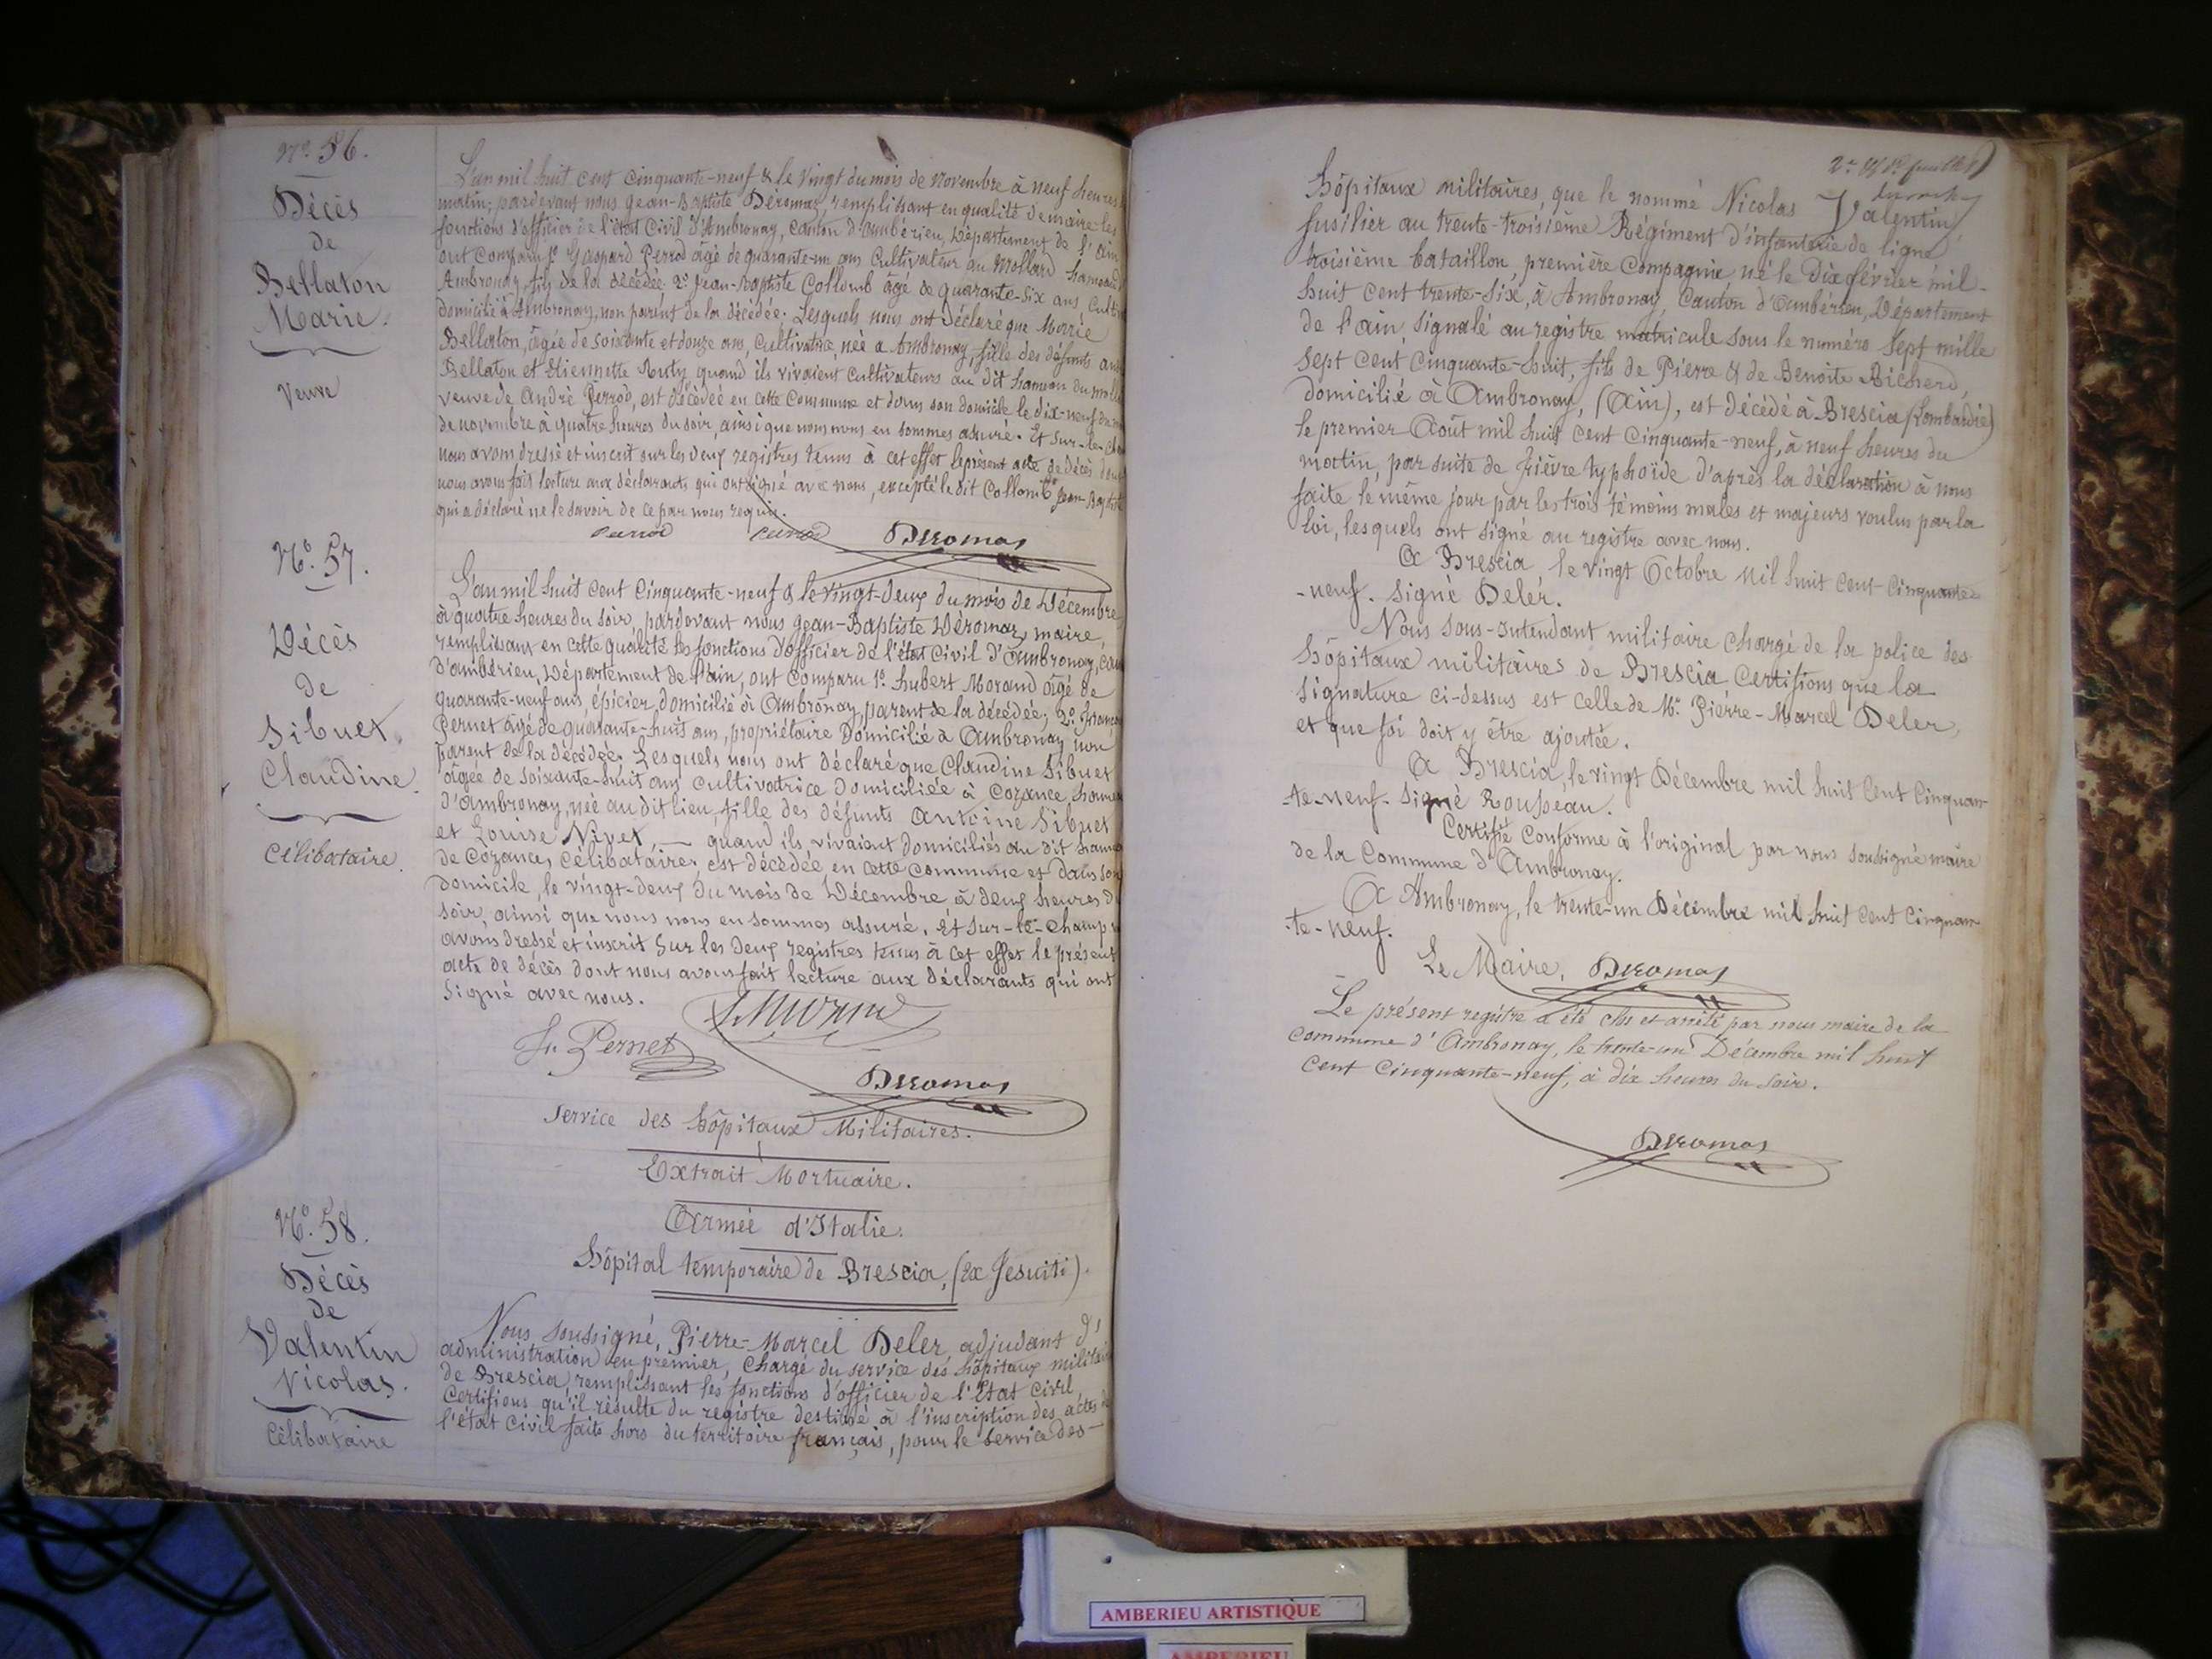 No. 56.
Décès
de
Bellaton
Marie.
Veuve
L'an mil huit cent cinquante-neuf & le vingt du mois de novembre à neuf heures
matin, pardevant nous Jean-Baptiste Déromas, remplissant en qualité de maire les
fonctions d'officier de l'état civil d'Ambronay, canton d'ambérieu, Département de l'ain
ont comparu 1o Gaspard Perrod âgé de quarante-un ans cultivateur au Mollard hameau
Ambronay, fils de la décédée 2o Jean-Baptiste Collomb âgé de quarante-six ans
domicilié à Ambronay, non parent de la décédée. Lesquels nous ont déclaré que Marie
Bellaton, âgée de soixante et douze ans, cultivatrice, née à Ambronay, fille des défunts
Bellaton et Etiennette Ruty, quand ils vivaient cultivateurs au dit hameau du
veuve de André Perrod, est décédée en cette commune et dans son domicile le dix-neuf
de novembre à quatre heures du soir, ainsi que nous nous en sommes assuré. Et sur-le-
nous avons dressé et inscrit sur les deux registres tenus à cet effet le présent acte de décès
nous avons fait lecture aux déclarants qui ont signé avec nous, excepté le dit Collomb Jean-Baptiste
qui a déclaré ne le savoir de ce par nous requis.
Perrod Deromas
No. 57.
Décès
de
Sibuet
Claudine.
Célibataire.
L'an mil huit cent cinquante-neuf & le vingt-deux du mois de Décembre
à quatre heures du soir, pardevant nous Jean-Baptiste Déromas, maire,
remplissant en cette qualité les fonctions d'officier de l'état civil d'Ambronay,
d'ambérieu, Département de l'ain, ont comparu 1o. hubert Morand âgé de
quarante-neuf ans, épicier, domicilié à Ambronay, parent de la décédée; 2o.
Pernet âgé de quarante-huit ans, propriétaire domicilié à Ambronay non
parent de la décédée. Lesquels nous ont déclaré que Claudine Sibuet
âgée de soixante-huit ans cultivatrice domiciliée à Cozance
d'Ambronay, née au dit lieu, fille des défunts Antoine Sibuet
et Louise Nivet, — quand ils vivaient domiciliés au dit
de Cozance, célibataire, est décédée en cette commune et dans son
domicile, le vingt-deux du mois de Décembre à deux heures
soir, ainsi que nous nous en sommes assuré. Et sur-le-champ
avons dressé et inscrit sur les deux registres tenus à cet effet le présent
acte de décès dont nous avons fait lecture aux déclarants qui ont
signé avec nous.
Pernet
Deromas
Service des hôpitaux Militaires.
Extrait Mortuaire.
Armée d'Italie.
Hôpital temporaire de Brescia, (Ex Jesuiti).
No. 58.
Décès
de
Valentin
Nicolas.
Célibataire
Nous soussigné, Pierre-Marcel Deler, adjudant d'
administration en premier, chargé du service des hôpitaux
de Brescia, remplissant les fonctions d'officier de l'Etat civil
Certifions qu'il résulte du registre destiné à l'inscription des actes
l'état civil faits hors du territoire français, pour le service des-
hôpitaux militaires, que le nommé Nicolas Valentin
fusilier au trente-troisième Régiment d'infanterie de ligne
troisième bataillon, première compagnie né le Dix février mil-
huit cent trente-six, à Ambronay, canton d'ambérieu, Département
de l'ain, signalé au registre matricule sous le numéro sept mille
sept cent cinquante-huit, fils de Pierre & de Benoite Richerd,
domicilié à Ambronay, (Ain), est décédé à Brescia (Lombardie)
le premier Août mil huit cent cinquante-neuf, à neuf heures du
matin, par suite de fièvre typhoïde d'après la déclaration à nous
faite le même jour par les trois témoins males et majeurs voulus par la
loi, lesquels ont signé au registre avec nous.
A Brescia, le vingt Octobre mil huit cent cinquante
-neuf. Signé Deler.
Nous sous-Intendant militaire chargé de la police des
hôpitaux militaires de Brescia certifions que la
signature ci-dessus est celle de Mr. Pierre-Marcel Deler,
et que foi doit y être ajoutée.
A Brescia, le vingt Décembre mil huit cent cinquan-
-te-neuf. Signé Rousseau.
Certifié conforme à l'original par nous soussigné maire
de la commune d'Ambronay.
A Ambronay, le trente-un Décembre mil huit cent cinquan-
-te-neuf.
Le Maire, Deromas
Le présent registre a été clos et arrêté par nous maire de la
commune d'Ambronay, le trente-un Décembre mil huit
cent cinquante-neuf, à dix heures du soir.
Deromas
AMBERIEU ARTISTIQUE
AMBERIEU